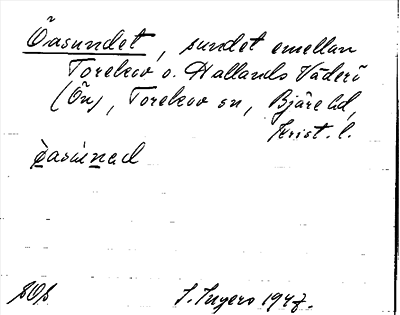 Öasundet, sundet emellan
Torekov o. Hallands Väderö
(Ön), Torekov sn, Bjäre hd,
Krist. l.
S. Ingers 1947.